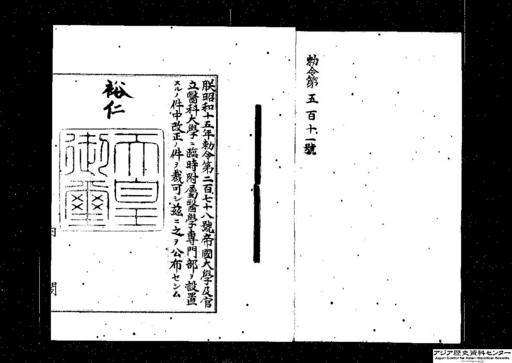 勅令第五百十一號
朕昭和十五年勅令第二百七十八號帝國大學及官
立醫科大學ニ臨時附屬醫學專門部ヲ設置
スルノ件中改正ノ件ヲ裁可シ玆ニ之ヲ公布セシム
裕仁
天皇
御璽
アジア歴史資料センター
Japan Center for Asian Historical Records